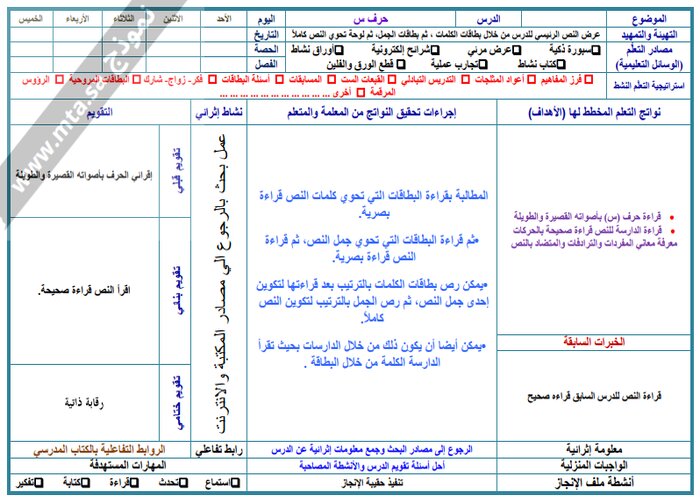 الموضوع الدرس حرف س اليوم الأحد الاثنين الثلاثاء الأربعاء الخميس
التهيئة والتمهيد عرض النص الرئيسي للدرس من خلال بطاقات الكلمات ، ثم بطاقات الجمل، ثم لوحة تحوي النص كاملاً التاريخ
مصادر التعلم سبورة ذكية عرض مرئي شرائح إلكترونية أوراق نشاط الحصة
(الوسائل التعليمية) كتاب نشاط تجارب عملية قطع الورق والفلين الفصل
استراتيجية التعلم النشط فرز المفاهيم أعواد المثلجات التدريس التبادلي القبعات الست المسابقات أسئلة البطاقات فكر- زواج- شارك البطاقات المروحية الرؤوس
المرقمة أخرى ... ... ... ... ... ... ... ... ... ...
نواتج التعلم المخطط لها (الأهداف) إجراءات تحقيق النواتج من المعلمة والمتعلم نشاط إثرائي التقويم
• قراءة حرف (س) بأصواته القصيرة والطويلة
• قراءة الدارسة للنص قراءة صحيحة بالحركات
معرفة معاني المفردات والترادفات والمتضاد بالنص
الخبرات السابقة
قراءة النص للدرس السابق قراءه صحيح
المطالبة بقراءة البطاقات التي تحوي كلمات النص قراءة
بصرية.
•ثم قراءة البطاقات التي تحوي جمل النص، ثم قراءة
النص قراءة بصرية.
•يمكن رص بطاقات الكلمات بالترتيب بعد قراءتها لتكوين
إحدى جمل النص، ثم رص الجمل بالترتيب لتكوين النص
كاملاً.
•يمكن أيضا أن يكون ذلك من خلال الدارسات بحيث تقرأ
الدارسة الكلمة من خلال البطاقة .
عمل بحث بالرجوع الي مصادر المكتبة والانترنت
تقويم قبلي
إقرائي الحرف بأصواته القصيرة والطويلة
تقويم بنائي
اقرأ النص قراءة صحيحة.
تقويم ختامي
رقابة ذاتية
معلومة إثرائية الرجوع إلى مصادر البحث وجمع معلومات إثرائية عن الدرس رابط تفاعلي الروابط التفاعلية بالكتاب المدرسي
الواجبات المنزلية أحل أسئلة تقويم الدرس والأنشطة المصاحبة المهارات المستهدفة
أنشطة ملف الإنجاز تنفيذ حقيبة الإنجاز استماع تحدث قراءة كتابة تفكير
نموذج
www.mta.sa